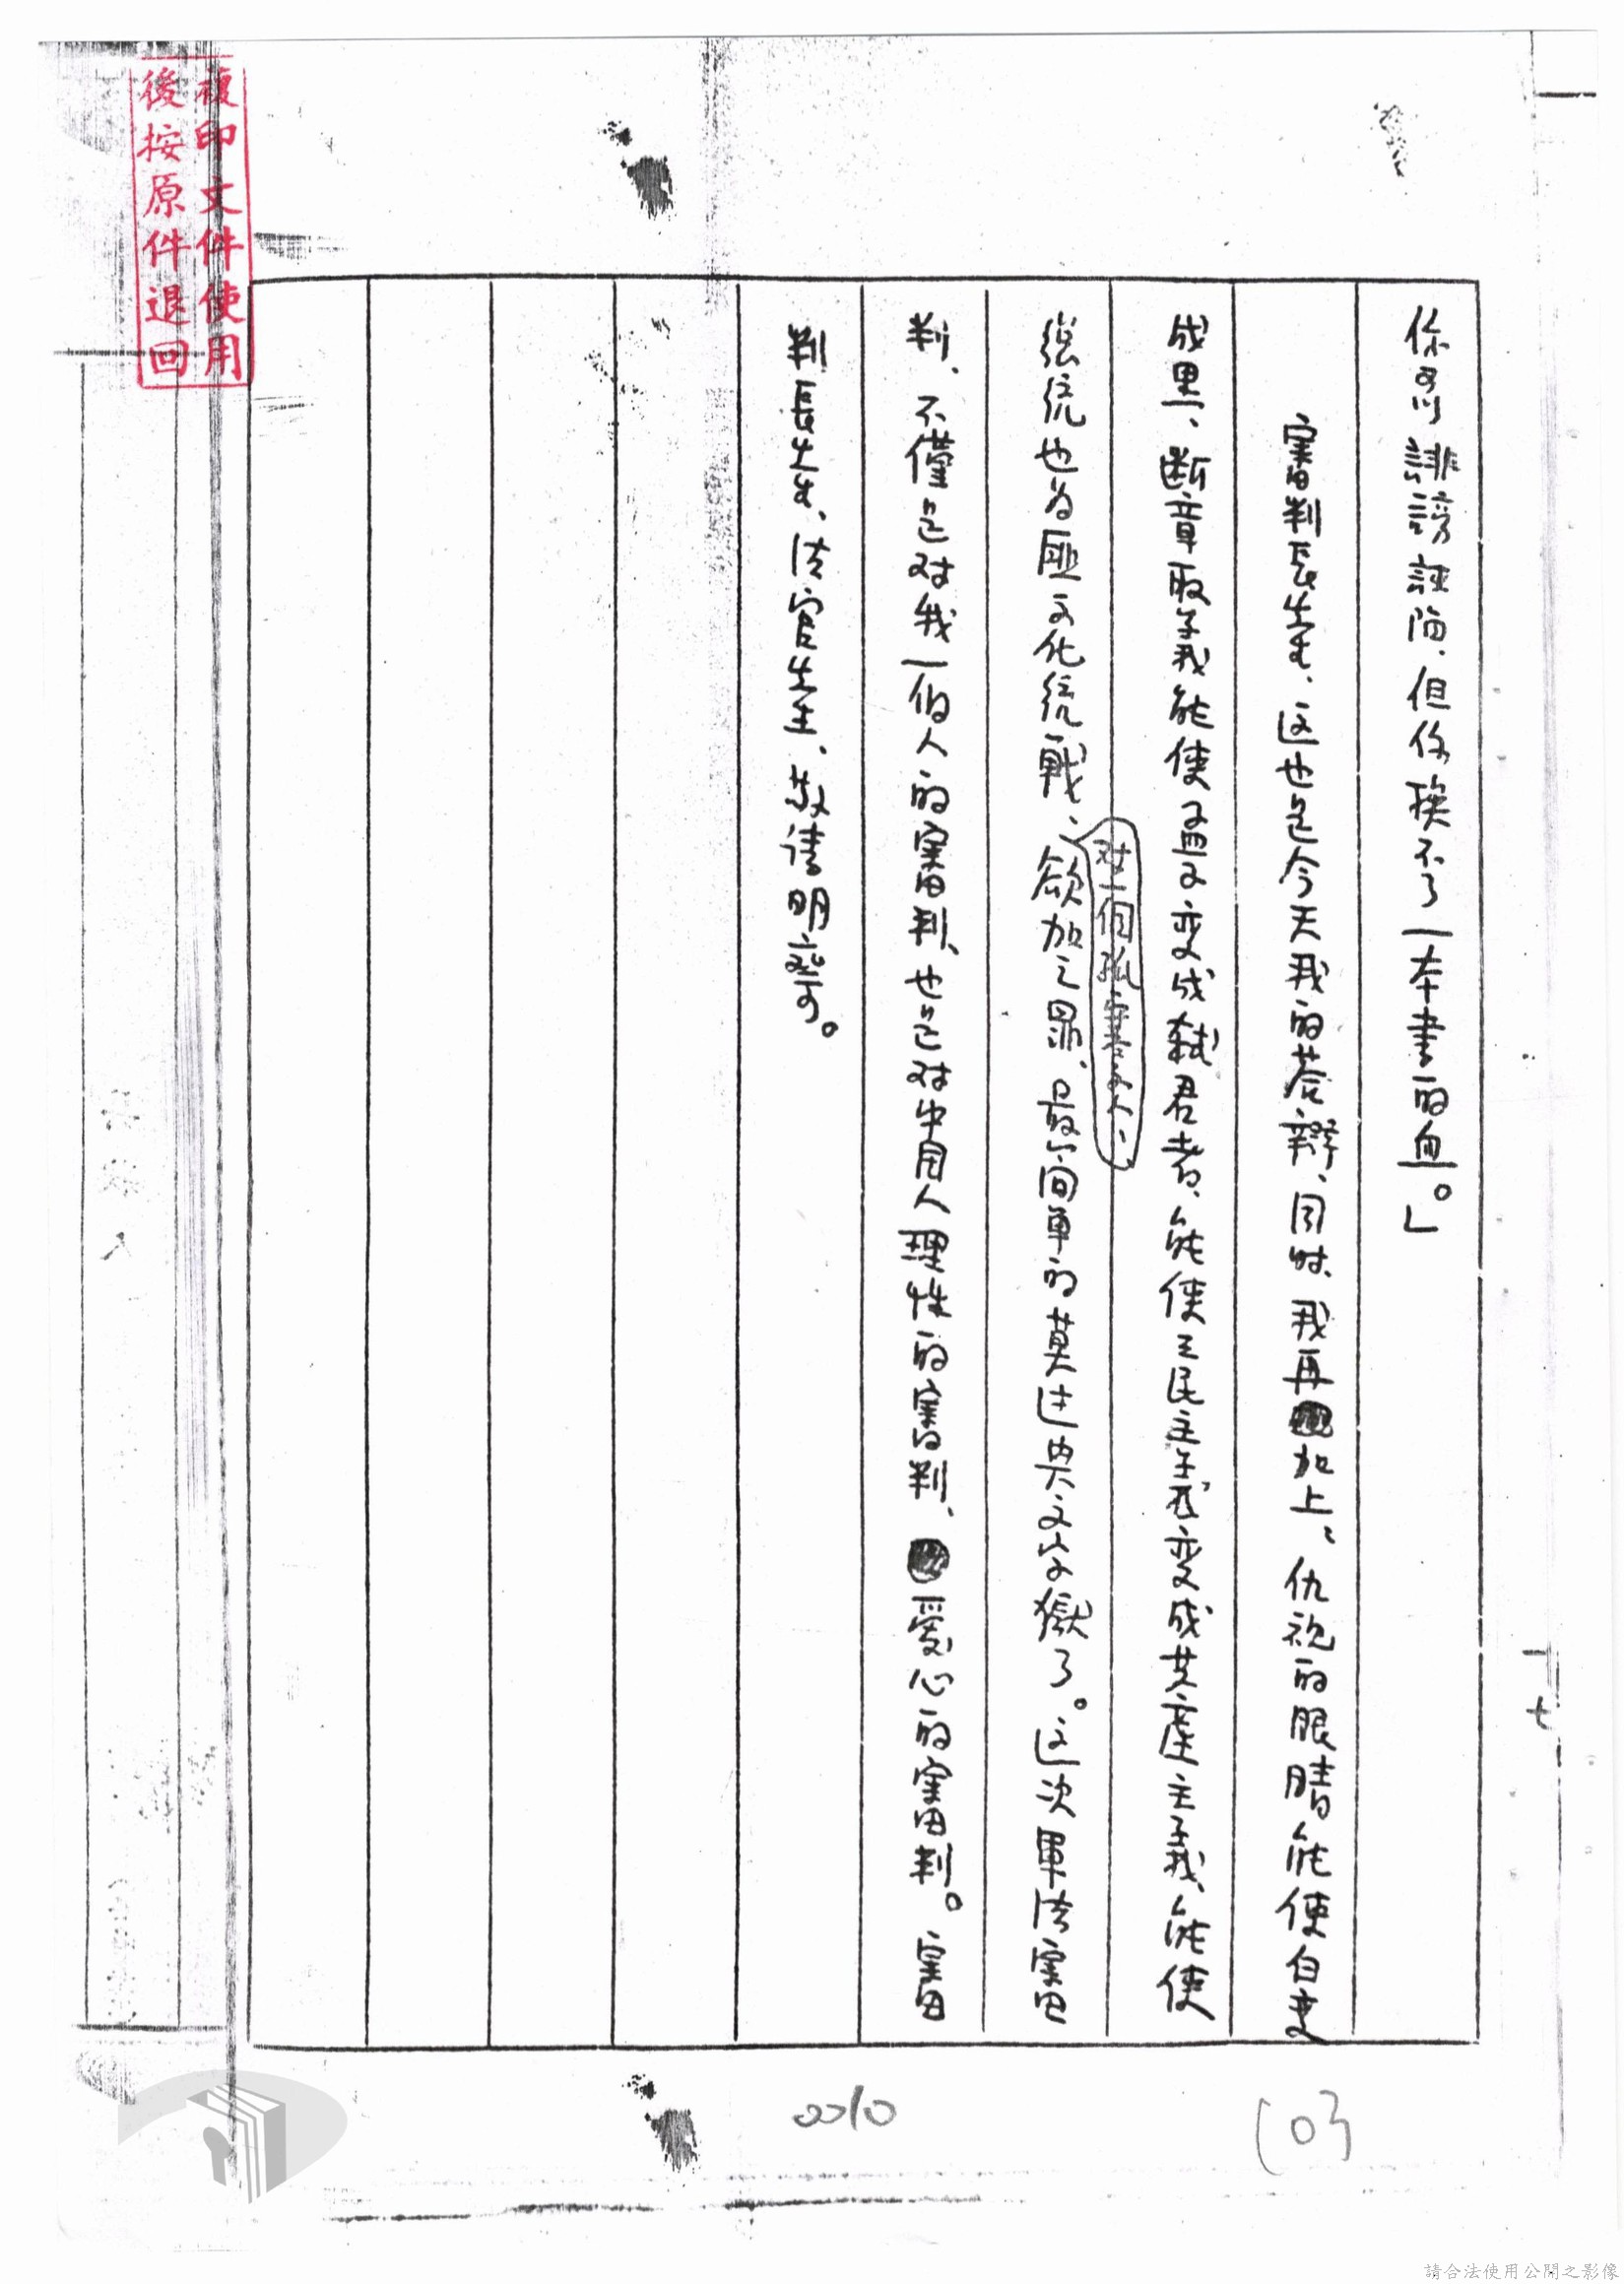 你可以誹謗誣陷、但你挨不了一本書的血。」
審判長先生、这也是今天我的答辯、同时、我再加上、仇視的眼睛能使白变
成黑、断章取義能使孟子变成弒君者、能使三民主義变成共產主義、能使
張統也为匪文化統戰、欲加之罪、最简单的莫过典文字獄了。这次軍法審
对一個孤寒文人、
判、不僅是对我一個人的審判、也是对中国人理性的審判、爱心的審判。審
判長先生、法官先生、敬请明察。
複印文件使用
後按原件退回
七
0010
103
請合法使用公開之影像